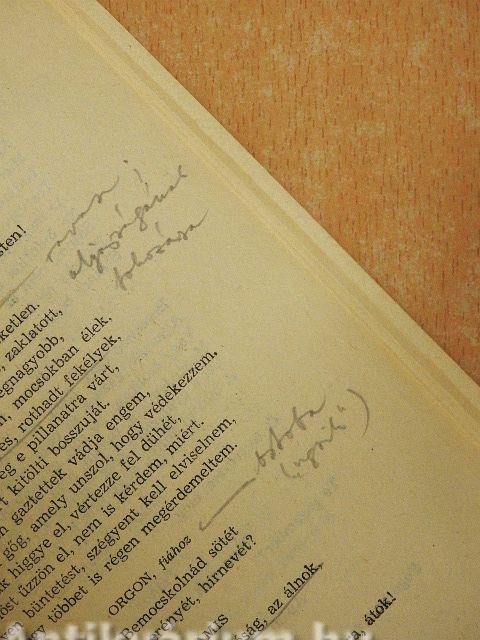 sten!
ravasz!
aljasságának
fokozása
ketlen.
, zaklatott,
egnagyobb,
n, mocsokban élek,
es, rothadt fekélyek,
ég e pillanatra várt,
t kitölti bosszuját.
n gaztettek vádja engem,
gőg, amely unszol, hogy védekezzem.
k higgye el, vértezze fel dühét,
öst űzzön el, nem is kérdem, miért.
büntetést, szégyent kell elviselnem,
többet is régen megérdemeltem.
ostoba
ORGON, fiához
emocskolnád sötét
erényét, hírnevét?
AMIS
ság, az álnok,
a, átok!
Antikvarium.hu